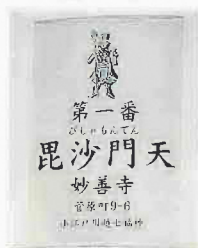 第一番
びしゃもんてん
毘沙門天
妙善寺
菅原町9-6
小江戸川越七福神